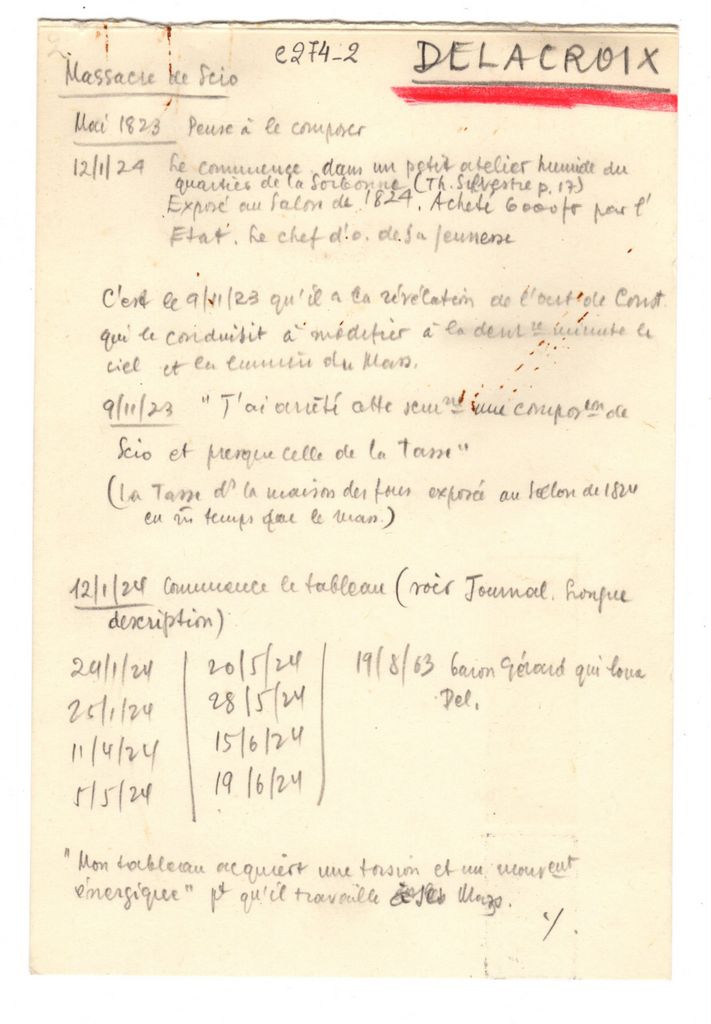 C274-2
DELACROIX
Massacre de Scio
Mai 1823 Pense à le composer
12/1/24 Le commence dans un petit atelier humide du
quartier de la Sorbonne (Th. Silvestre p. 17)
Exposé au Salon de 1824. Acheté 6000 fr par l'
Etat. Le chef d'o. de sa jeunesse
C'est le 9/11/23 qu'il a la révélation de l'art de Const.
qui le conduisit à modifier à la dern re minute le
ciel et la lumière du Mass.
9/11/23 " J'ai arrêté cette sem ne une compos on de
Scio et presque celle de la Tasse"
(La Tasse ds la maison des fous exposée au Salon de 1824
en m temps que le mass.)
12/1/24 Commence le tableau (voir Journal. Longue
description)
24/1/24
25/1/24
11/4/24
5/5/24
20/5/24
28/5/24
15/6/24
19/6/24
19/8/63 baron Gérard qui loua
Del.
"Mon tableau acquiert une torsion et un mouv ent
énergique" pt qu'il travaille Mass.
./.